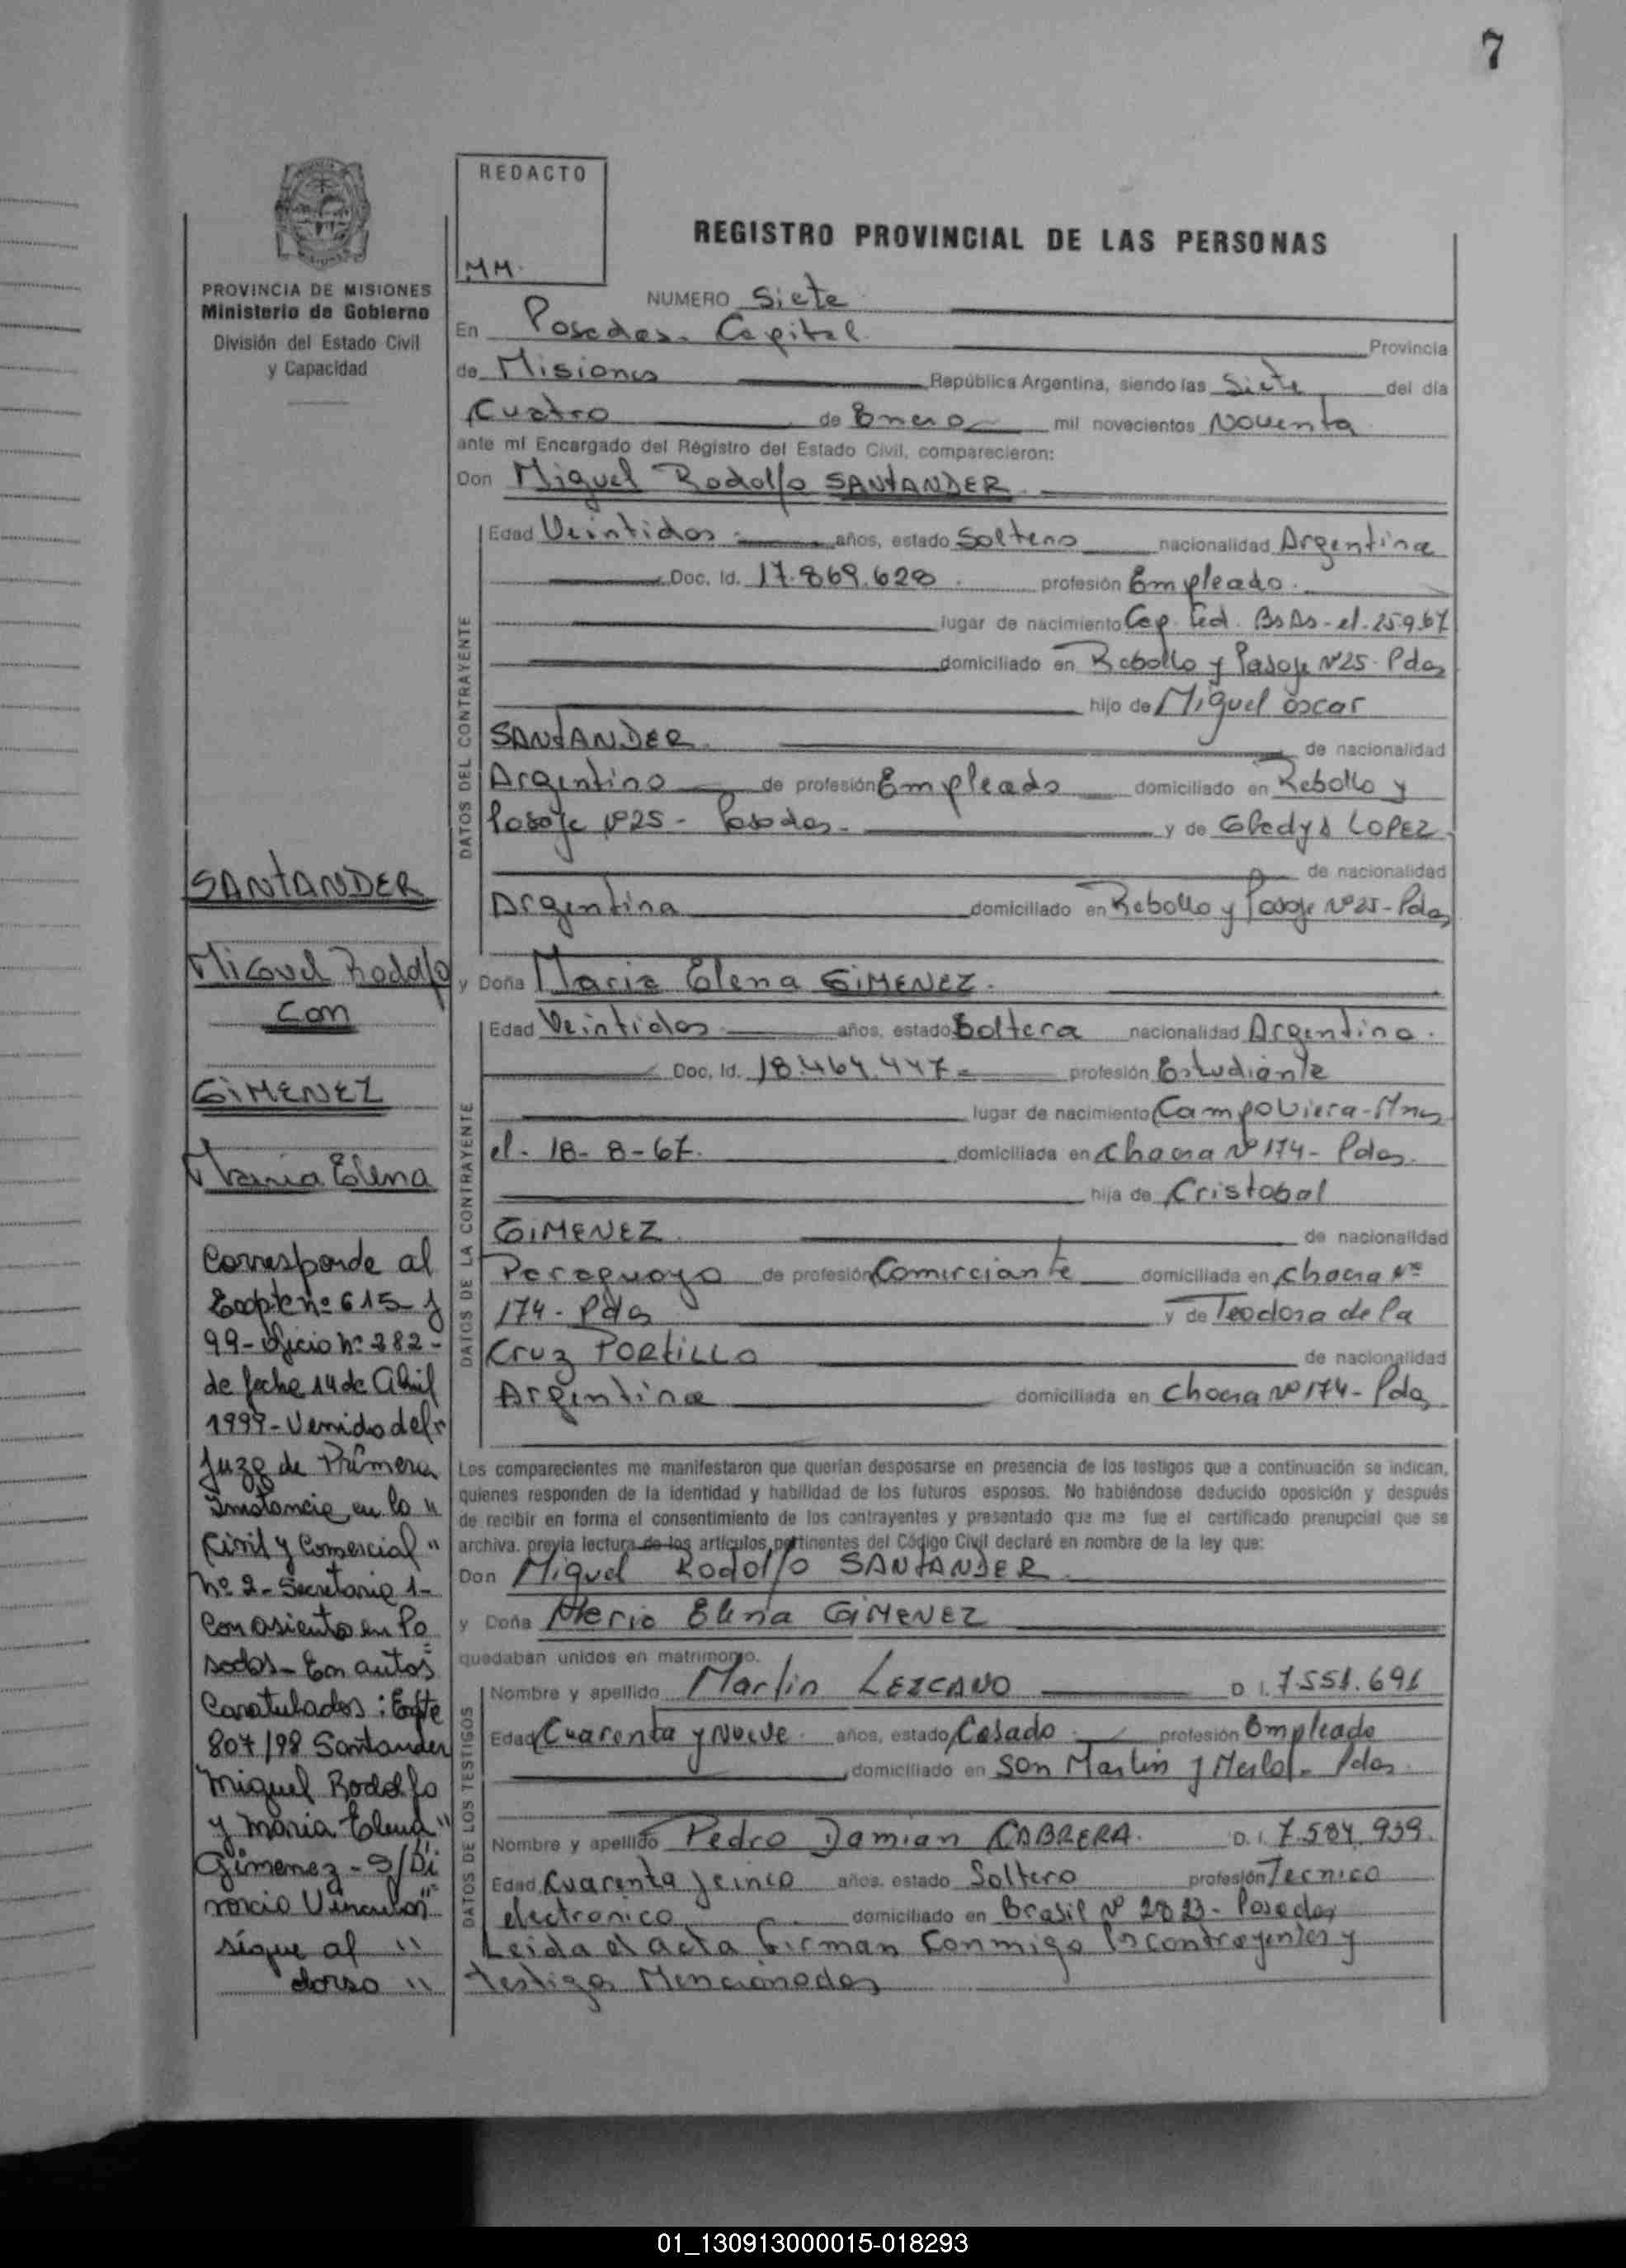 7
REDACTO
MM.
REGISTRO PROVINCIAL DE LAS PERSONAS
PROVINCIA DE MISIONES
Ministerio de Gobierno
División del Estado Civil
y Capacidad
NUMERO Siete
En Posadas. Capital. Provincia
de Misiones República Argentina, siendo las Siete del día
Cuatro de Enero mil novecientos Noventa
ante mí Encargado del Registro del Estado Civil, comparecieron:
Don Miguel Rodolfo SANTANDER.
DATOS DEL CONTRAYENTE
Edad Veintidos años, estado Soltero nacionalidad Argentina
Doc. Id. 17.869.628. profesión Empleado.
lugar de nacimiento Cap. Fed. Bs As - el. 25.9.67
domiciliado en Rebollo y Pasaje Nº25 - Pdas
hijo de Miguel oscar
SANTANDER. de nacionalidad
Argentino de profesión Empleado domiciliado en Rebollo y
Pasaje Nº25 - Posadas. y de Gladys LOPEZ
de nacionalidad
Argentina domiciliado en Rebollo y Pasaje Nº25 - Pdas
y Doña Maria Elena GIMENEZ.
DATOS DE LA CONTRAYENTE
Edad Veintidos años, estado Soltera nacionalidad Argentina.
Doc. Id. 18.464.447 - profesión Estudiante
lugar de nacimiento Campo Viera - Mnes
el - 18 - 8 - 67. domiciliada en Chacra Nº 174 - Pdas.
hija de Cristobal
GIMENEZ. de nacionalidad
Paraguayo de profesión Comerciante domiciliada en Chacra Nº
174 - Pdas y de Teodora de la
Cruz PORTILLO de nacionalidad
Argentina domiciliada en Chacra Nº 174 - Pdas
Los comparecientes me manifestaron que querían desposarse en presencia de los testigos que a continuación se indican,
quienes responden de la identidad y habilidad de los futuros esposos. No habiéndose deducido oposición y después
de recibir en forma el consentimiento de los contrayentes y presentado que me fue el certificado prenupcial que se
archiva. previa lectura de los artículos pertinentes del Código Civil declaré en nombre de la ley que:
Don Miguel Rodolfo SANTANDER.
y Doña Maria Elena GIMENEZ
quedaban unidos en matrimonio.
DATOS DE LOS TESTIGOS
Nombre y apellido Martin LEZCANO D. I. 7.551.691
Edad Cuarenta y Nueve. años, estado Casado profesión Empleado
domiciliado en San Martin y Merlo - Pdas.
Nombre y apellido Pedro Damian CABRERA. D. I. 7.584.939.
Edad Cuarenta y cinco años, estado Soltero profesión Tecnico
electronico domiciliado en Brasil Nº 2823 - Posadas
Leida el acta firman conmigo los contrayentes y
testigos Mencionados
SANTANDER
Miguel Rodolfo
con
GIMENEZ
Maria Elena
Corresponde al
Expte nº 615 - y
99 - oficio nº 382 -
de fecha 14 de Abril
1999 - Venido del
Juzg de Primera
Instancia en lo "
Civil y Comercial "
nº 2 - Secretaria 1 -
Con asiento en Po
sadas - En autos
Caratulados: Expte
807/98 Santander
Miguel Rodolfo
y Maria Elena "
Gimenez - S/Di
vorcio Vincular "
sigue al "
dorso "
01_130913000015-018293